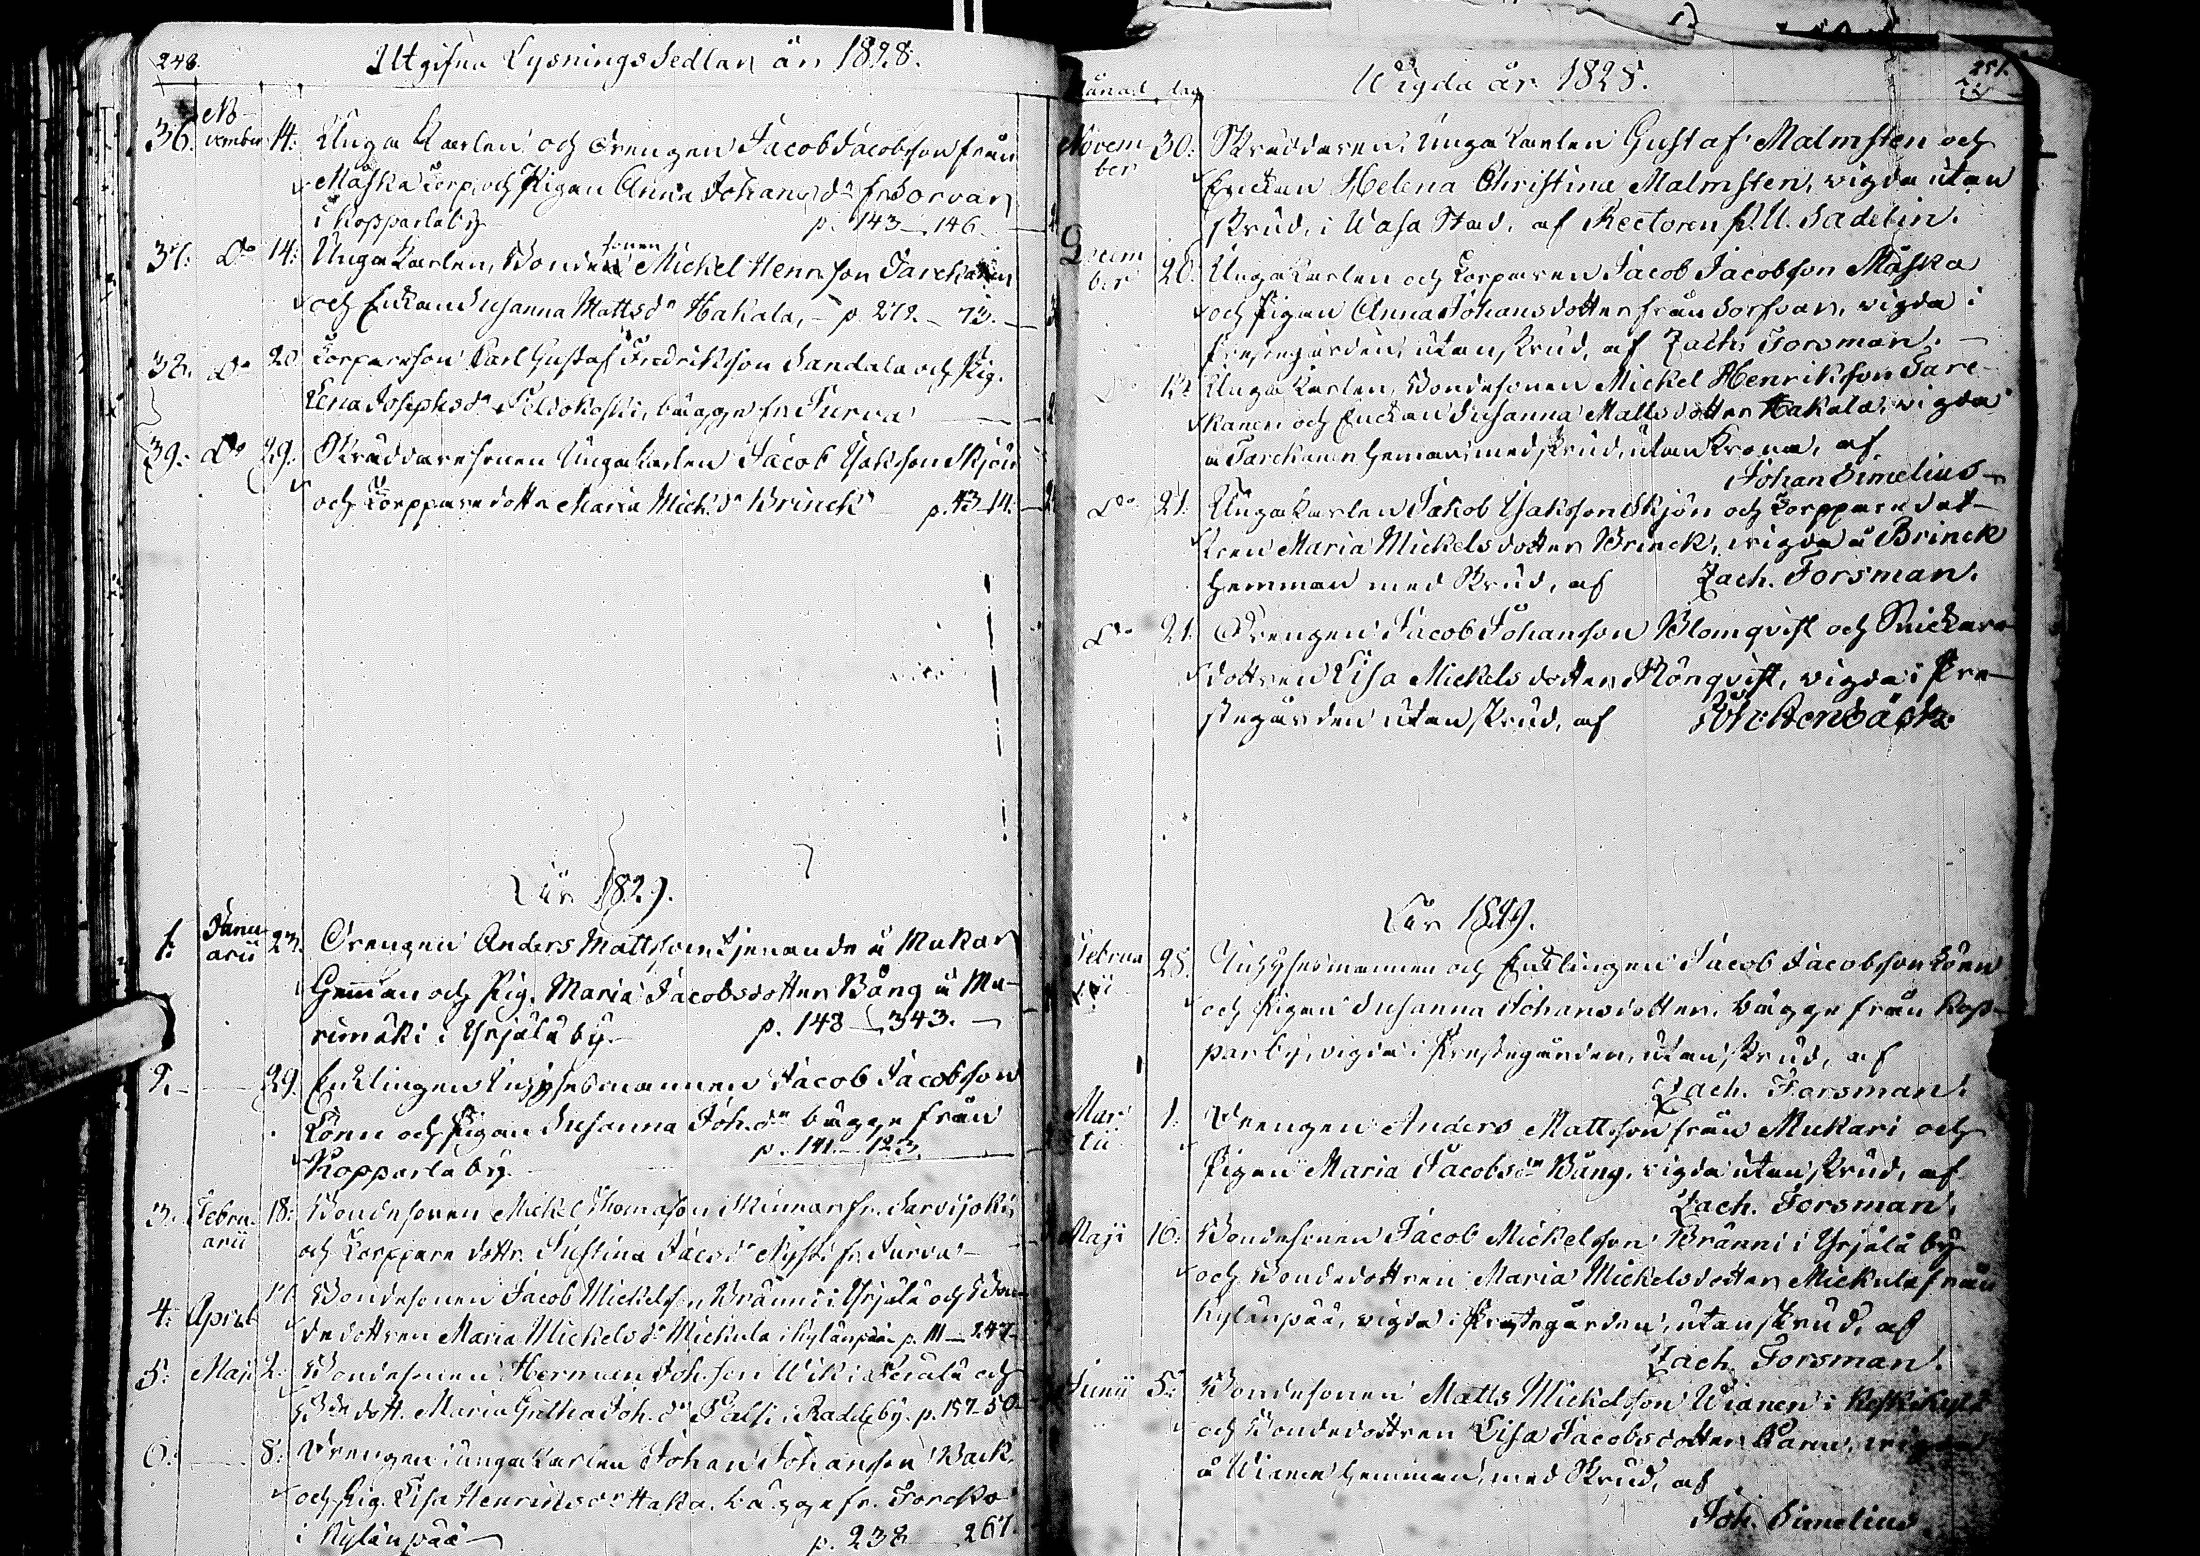 248.
Utgifna Lysnings Sedlar år 1828.
36. November 14. Unga Karlen och Drengen Jacob Jacobsson från
Måska torp, och Pigan Anna Johansdr fr. Sorvari
i Kopparla by p. 143 — 146.
37. Do 14. Unga Karlen, Bondesonen Mickel Henrsson Tarckanen
och Enkan Susanna Mattsdr Hakala, — p. 272. — 73.
38. Do 20. Torparson Karl Gustaf Fredriksson Sandala och Pig.
Lena Josephsdr Peldokoski, bägge fr. Jurva
39. Do 29. Skräddaresonen Unga Karlen Jacob Isaksson Skjön
och Torpparedottr Maria Mich.dr Brinck p. 43 — 14.
År 1829.
1. Januarii 23. Drengen Anders Mattsson tjenande å Mukar
Hemman och Pig. Maria Jacobsdotter Bång å Ma-
rimäki i Yrjälä by. p. 148 — 343.
2. — 29. Enklingen Inhysesmannen Jacob Jacobsson
Lönn och Pigan Susanna Joh.dr bägge från
Kopparla by. p. 141 — 123.
3. Februarii 18. Bondesonen Mickel Thomasson Skinnar fr. Sarvijoki
och Torppare dottr. Justina Jacsdr Nyst. fr. Jurva
4. April 11. Bondesonen Jacob Mickelsson Bränni i Yrjälä och Bon-
dedottren Maria Mickelsdr Mickula i Kylänpää p. 111 — 247
5. Maji 2. Bondesonen Herman Joh.sson Wik i Perälä och
Bdedott. Maria Gretha Joh.dr Palli i Radde by. p. 157 — 50
6. — 8. Drengen unga Karlen Johan Johansson Back
och Pig. Lisa Henricsdr Haka, bägge fr. Torcko
i Kylänpää p. 238 267.
251.
Wigda år 1828.
Månad dag
November 30. Skräddaren, Unga Karlen Gustaf Malmsten och
Enckan Helena Christina Malmsten, vigda utan
skrud, i Wasa Stad, af Rectoren P. U. Sadelin.
December 20. Unga Karlen och Torparen Jacob Jacobsson Måska
och Pigan Anna Johansdotter från Sorfvar, vigda i
Prestegården, utan skrud, af Zach. Forsman.
Do Unga Karlen, Bondesonen Mickel Henriksson Tare-
kanen och Enckan Susanna Mattsdotter Hakala, vigda
å Tarckanen Hemman, med skrud, utan Krona, af
Johan Simelius
Do 21. Unga Karlen Jakob Isaksson Skjön och Torpparedot-
tren Maria Mickelsdotter Brinck, vigda å Brinck
Hemman med skrud, af Zach. Forsman.
Do 21. Drengen Jacob Johansson Blomqvist och Snickare
dottren Lisa Mickelsdotter Rönqvist, vigda i Pre-
stegården utan skrud, af
År 1829.
Februarii 25. Inhysesmannen och Enklingen Jacob Jacobsson Lönn
och Pigan Susanna Johansdotter, bägge från Kop-
par by, vigda i Prestegården, utan skrud, af
Zach. Forsman.
Martii 1. Drengen Anders Mattsson från Mukari och
Pigan Maria Jacobsdr Bång, vigda utan skrud, af
Zach. Forsman.
Maji 16. Bondesonen Jacob Mickelsson Bränni i Yrjälä by
och Bondedottren Maria Mickelsdotter Mickula från
Kylänpää, vigda i Prestegården, utan skrud, af
Zach. Forsman.
Junii 5. Bondesonen Matts Mickelsson Wianen i Keskikylä
och Bondedottren Lisa Jacobsdotter Paren, vigda
å Wianen Hemman, med skrud, af
Joh. Simelius